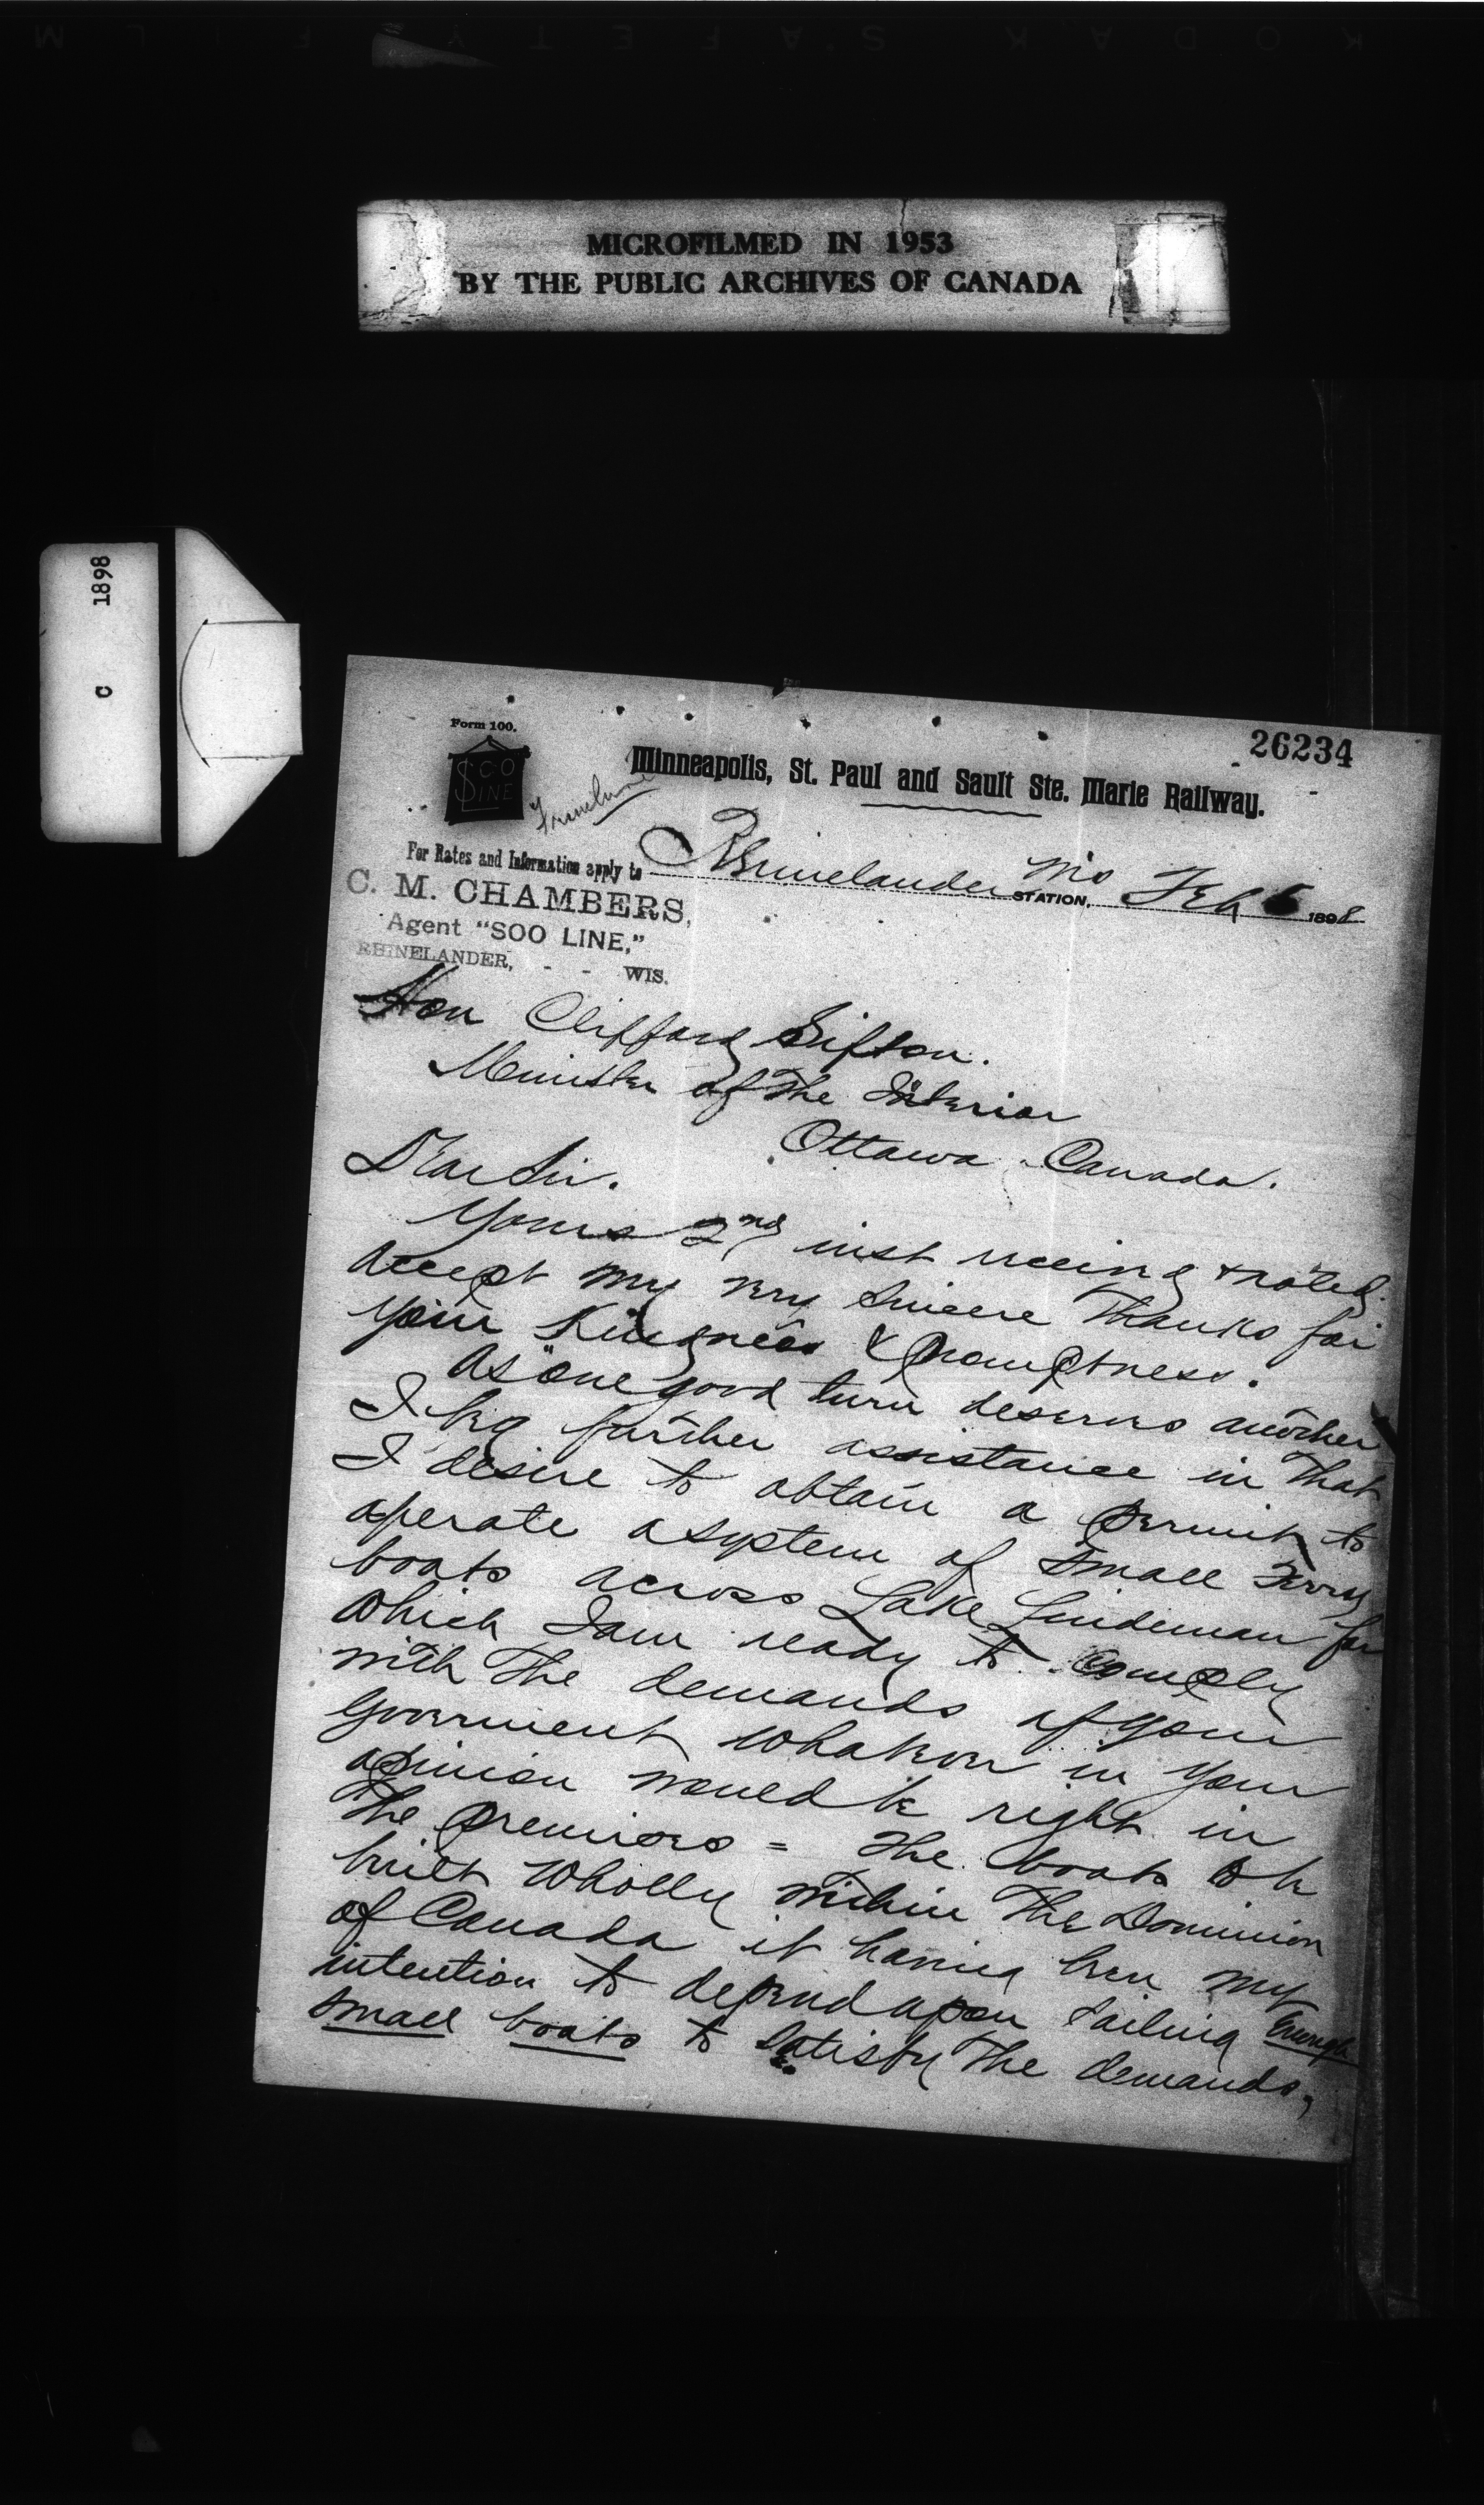 KODAK SAFETY FILM
MICROFILMED IN 1953
BY THE PUBLIC ARCHIVES OF CANADA
C 1898
26234
Form 100.
SOO
LINE
Minneapolis, St. Paul and Sault Ste. Marie Railway.
For Rates and Information apply to
C. M. CHAMBERS,
Agent "SOO LINE,"
RHINELANDER, - - WIS.
Rhinelander Wis STATION, Feb 5 1898
Hon Clifford Sifton.
Minister of The Interior
Ottawa, Canada.
Dear Sir.
Yours 2nd inst received & noted.
accept my very sincere Thanks for
your Kindness & promptness.
As "one good turn deserves another
I beg further assistance in That
I desire to obtain a permit to
operate a system of small Ferry
boats across Lake Lindeman for
which I am ready to comply
with The demands of your
Goverment whatever in your
opinion would be right in
The premises = The boats to be
built wholly within The Dominion
of Canada it having been my
intention to depend upon Sailing Enough
small boats to satisfy The demands,